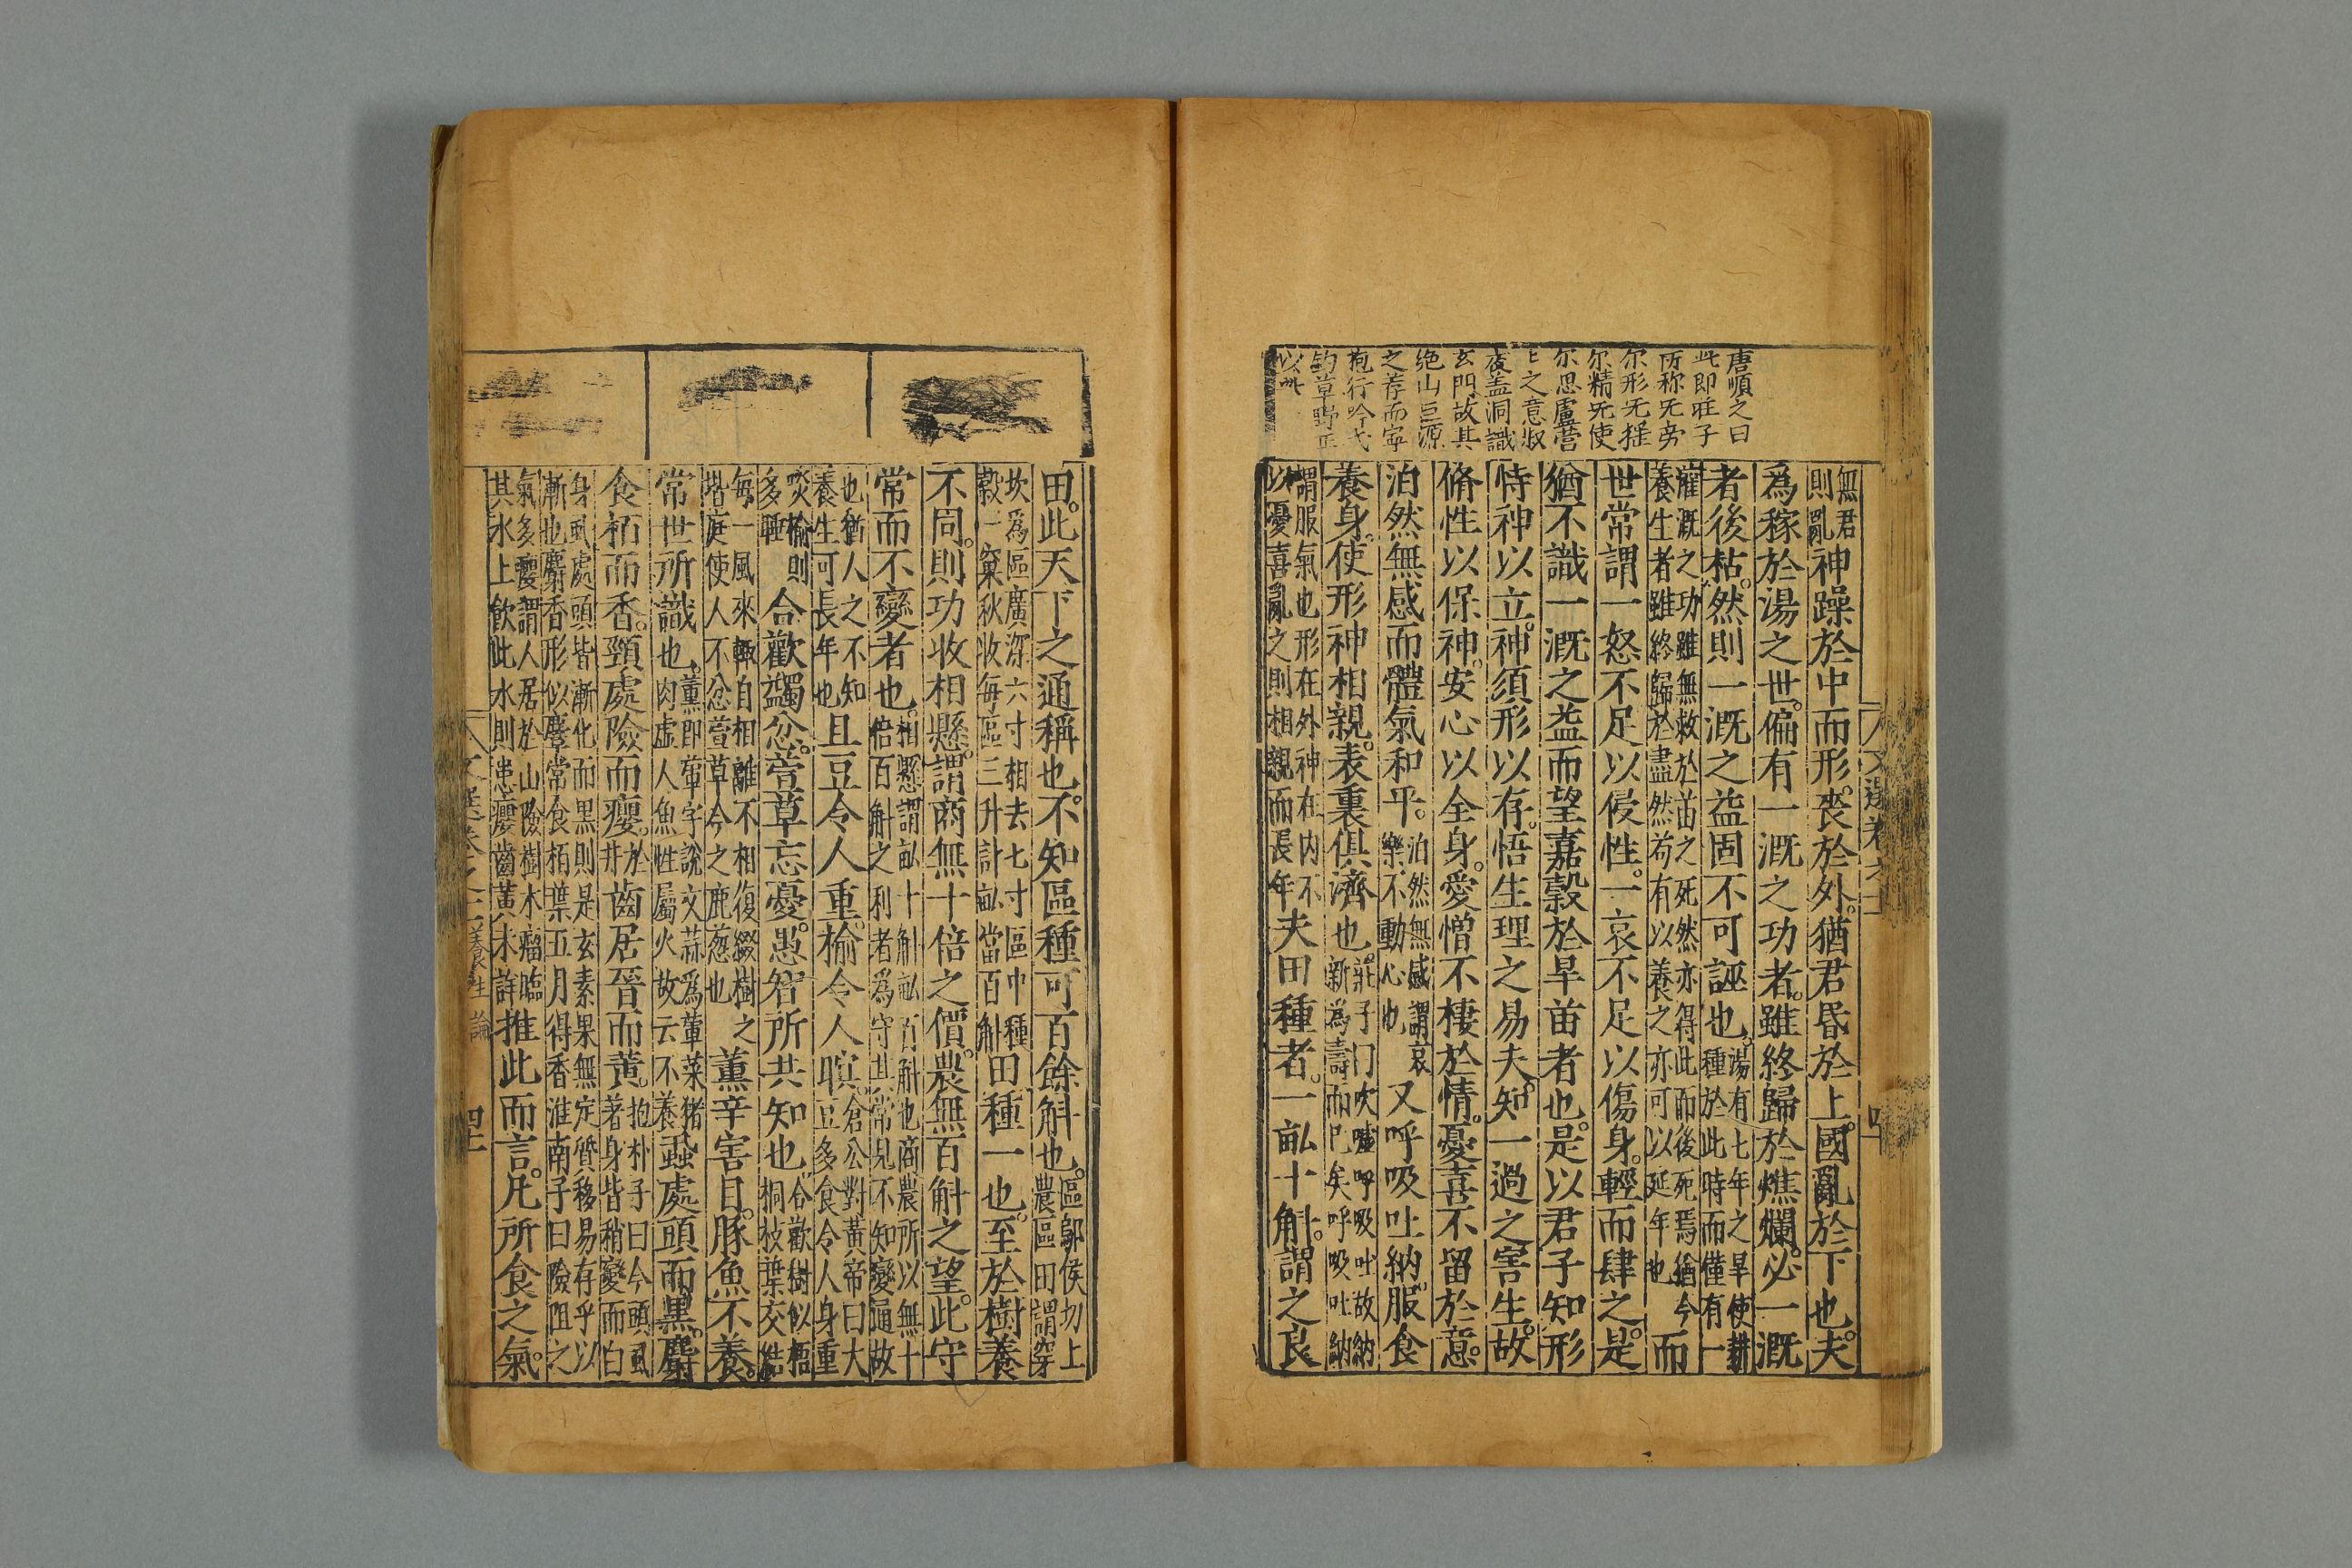 唐順之曰
此即莊子
所称旡旁
尔形旡揺
尔精旡使
尔思慮營
營之意叔
夜盖洞識
玄門故其
绝山巨源
之荐而寜
抱行吟弋
釣草野正
以此
無君則亂神躁於中而形喪於外猶君昏於上國亂於下也夫
爲稼於湯之世偏有一溉之功者雖終歸於燋爛必一溉
者後枯然則一溉之益固不可誣也湯有七年之旱使耕種於此時而僅有一
灌溉之功雖無救於苗之死然亦得此而後死焉猶今養生者雖終歸於盡然苟有以養之亦可以延年也而
世常謂一怒不足以侵性一哀不足以傷身輕而肆之是
猶不識一溉之益而望嘉穀於旱苗者也是以君子知形
恃神以立神須形以存悟生理之易夫知一過之害生故
脩性以保神安心以全身愛憎不棲於情憂喜不留於意
泊然無感而體氣和平泊然無感謂哀樂不動心也又呼吸吐納服食
養身使形神相親表裏俱濟也莊子門吹噓呼吸吐故納新爲壽而已矣呼吸吐納
謂服氣也形在外神在内不以憂喜亂之則相親而長年夫田種者一畝十斛謂之良
文選卷之十
田此天下之通稱也不知區種可百餘斛也區鄔侯切上農區田謂穿
坎爲區廣深六寸相去七寸區中種穀一窠秋收每區三升計畝當百斛田種一也至於樹養
不同則功收相懸謂商無十倍之價農無百斛之望此守
常而不變者也相懸謂畝十斛畝百斛也商農所以無十倍百斛之利者爲守其常見不知變逼故
也猶人之不知養生可長年也且豆令人重榆令人瞑倉公對黃帝曰大豆多食令人身重
啖榆則多睡合歡蠲忿萱草忘憂愚智所共知也合歡樹似梧桐枝葉交結
每一風來輙自相離不相復綴樹之堦庭使人不忿萱草今之鹿葱也薰辛害目豚魚不養
常世所識也薰即葷字說文蒜爲葷菜猪肉虛人魚性屬火故云不養蝨處頭而黑麝
食栢而香頸處險而癭於井齒居晉而黃抱朴子曰今頭蝨著身皆稍變而白
身蝨處頭皆漸化而黑則是玄素果無定質移易存乎以漸也麝香形似麞常食栢葉五月得香淮南子曰險阻之
氣多癭謂人居於山險樹木瘤臨其水上飲此水則患癭齒黃未詳推此而言凡所食之氣
養生論